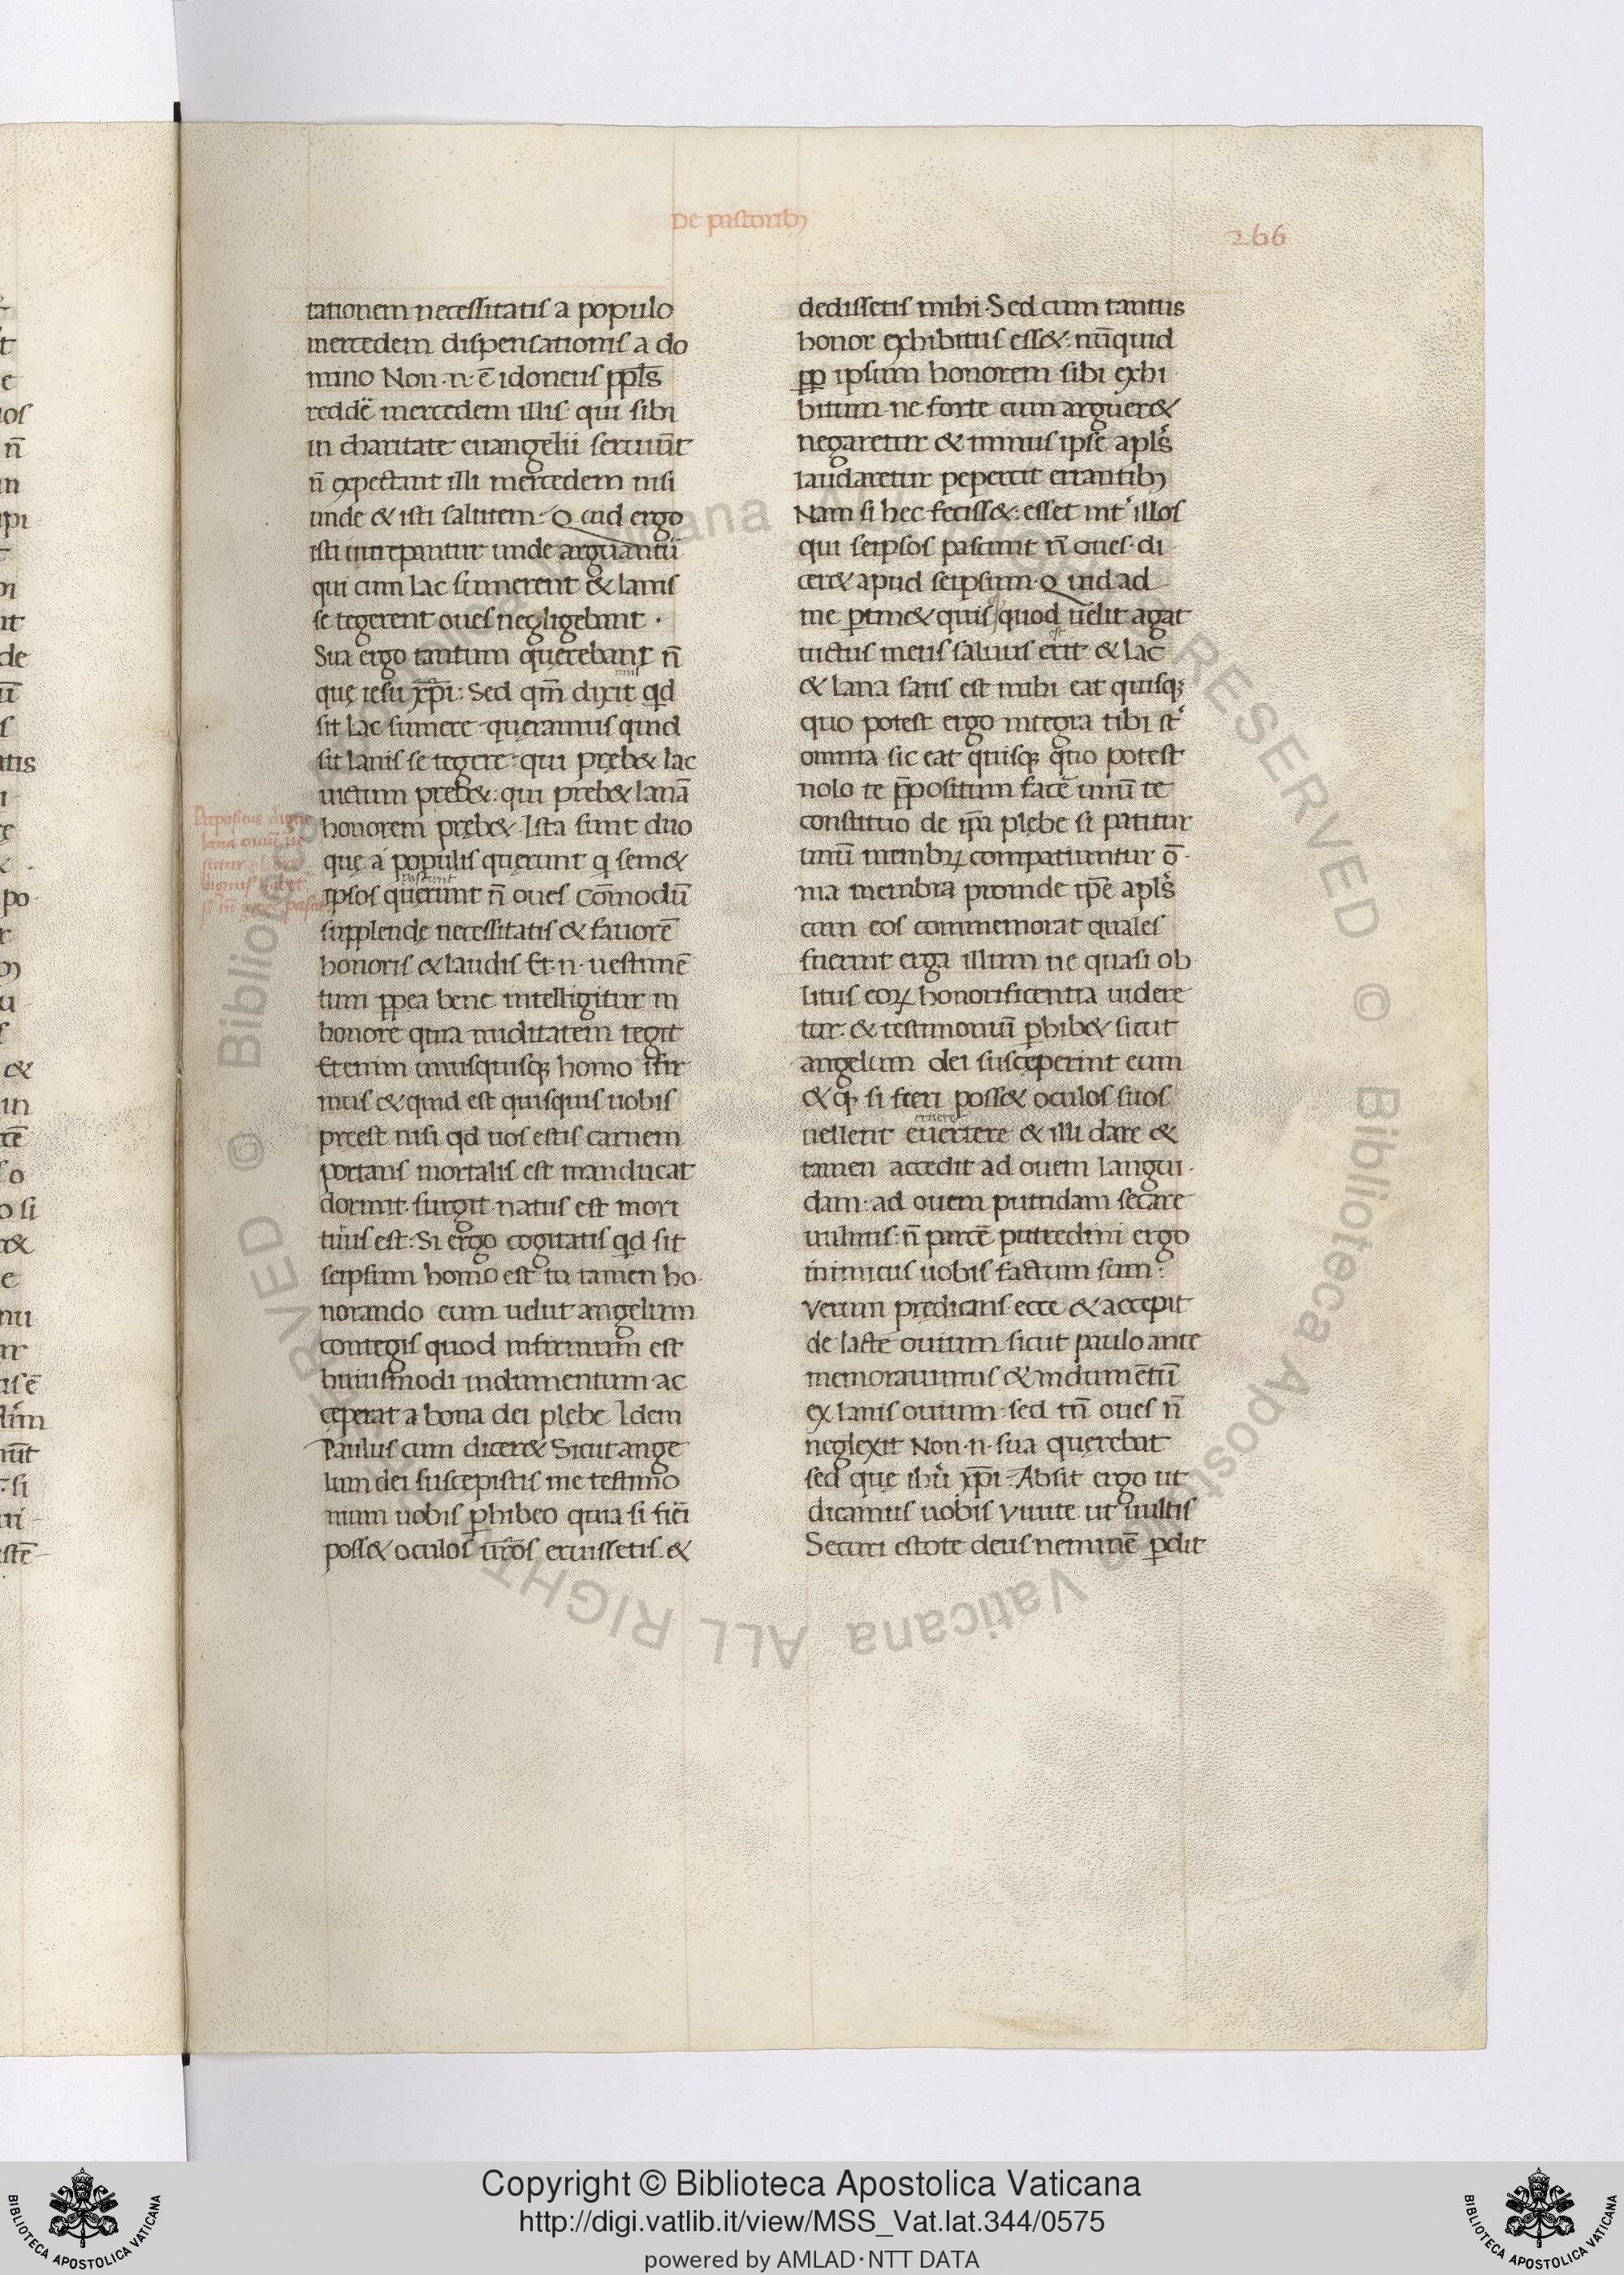 De pastoribꝫ
266
tationem necessitatis a populo
mercedem dispensationis a do
mino Non·n·ē idoneus ppl̄s
reddē mercedem illis qui sibi
in charitate euangelii seruiūt
n̄ expectant illi mercedem nisi
unde & isti salutem· Quid ergo
isti increpantur unde arguantū
qui cum lac sumerent & lanis
se tegerent oues negligebant ·
Sua ergo tantum querebant n̄
quę iesu xp̄i: Sed qm̄ dixit qd
sit lac sumere queramus quid
sit lanis se tegere· qui pręb& lac
uictum preb&: qui preb& lanā
honorem pręb&· Ista sunt duo
quę a populis querunt q sem&
pascunt
ipsos querunt n̄ oues Cōmodū
supplendę necessitatis & fauorē
honoris & laudis Et·n·uestimē
tum ppea bene intelligitur in
honore quia nuditatem tegit
Etenim unusquisqꝫ homo īfir
mus & quid est quisquis uobis
preest nisi qd uos estis carnem
portans mortalis est manducat
dormit· surgit· natus est mori
turus est: Si ergo cogitatis qd sit
seipsum homo est tu tamen ho-
norando eum uelut angelum
contegis quod infirmum est
huiusmodi indumentum ac
ceperat a bona dei plebe Idem
Paulus cum dicer& Sicut ange
lum dei suscepistis me testimo
nium uobis phibeo quia si fiēi
poss& oculos ūros eruissetis &
dedissetis mihi· Sed cum tantus
honor exhibitus ess&· nūquid
pp ipsum honorem sibi exhi
bitum· ne forte cum arguer&
negaretur & minus ipse apl's
laudaretur pepercit errantibꝫ
Nam si hec feciss&: esset int' illos
qui seipsos pascunt n̄ oues· di
cer& apud seipsum· Quid ad
me ptin& quis quod uelit agat
est
uictus meus saluus erit & lac
& lana satis est mihi eat quisqꝫ
quo potest ergo integra tibi st'
omnia sic eat quisqꝫ quo potest
nolo te p̄positum facē unū te
constituo de ipa plębe si patitur
unū membꝝ compatiuntur ō-
ma membra proinde ip̄e apl's
cum eos commemorat quales
fuerint erga illum ne quasi ob
litus eoꝝ honorificentia uidere
tur· & testimoniū phib& sicut
angelum dei susceperint eum
& q si fieri poss& oculos suos
eruere
uellent euertere & illi dare &
tamen accedit ad ouem langui-
dam· ad ouem putridam secare
uulnus: n̄ parcē putredini ergo
inimicus uobis factum sum·
Verum prędicans ecce & accepit
de lacte ouium sicut paulo ante
memorauimus & indumētū
ex lanis ouium· sed tn̄ oues n̄
neglexit Non·n·sua querebat
sed quę ihū xp̄i· Absit ergo ut
dicamus uobis Viuite ut uultis
Securi estote deus neminē pdit
Copyright © Biblioteca Apostolica Vaticana
http://digi.vatlib.it/view/MSS_Vat.lat.344/0575
powered by AMLAD·NTT DATA
BIBLIOTECA APOSTOLICA VATICANA
BIBLIOTECA APOSTOLICA VATICANA